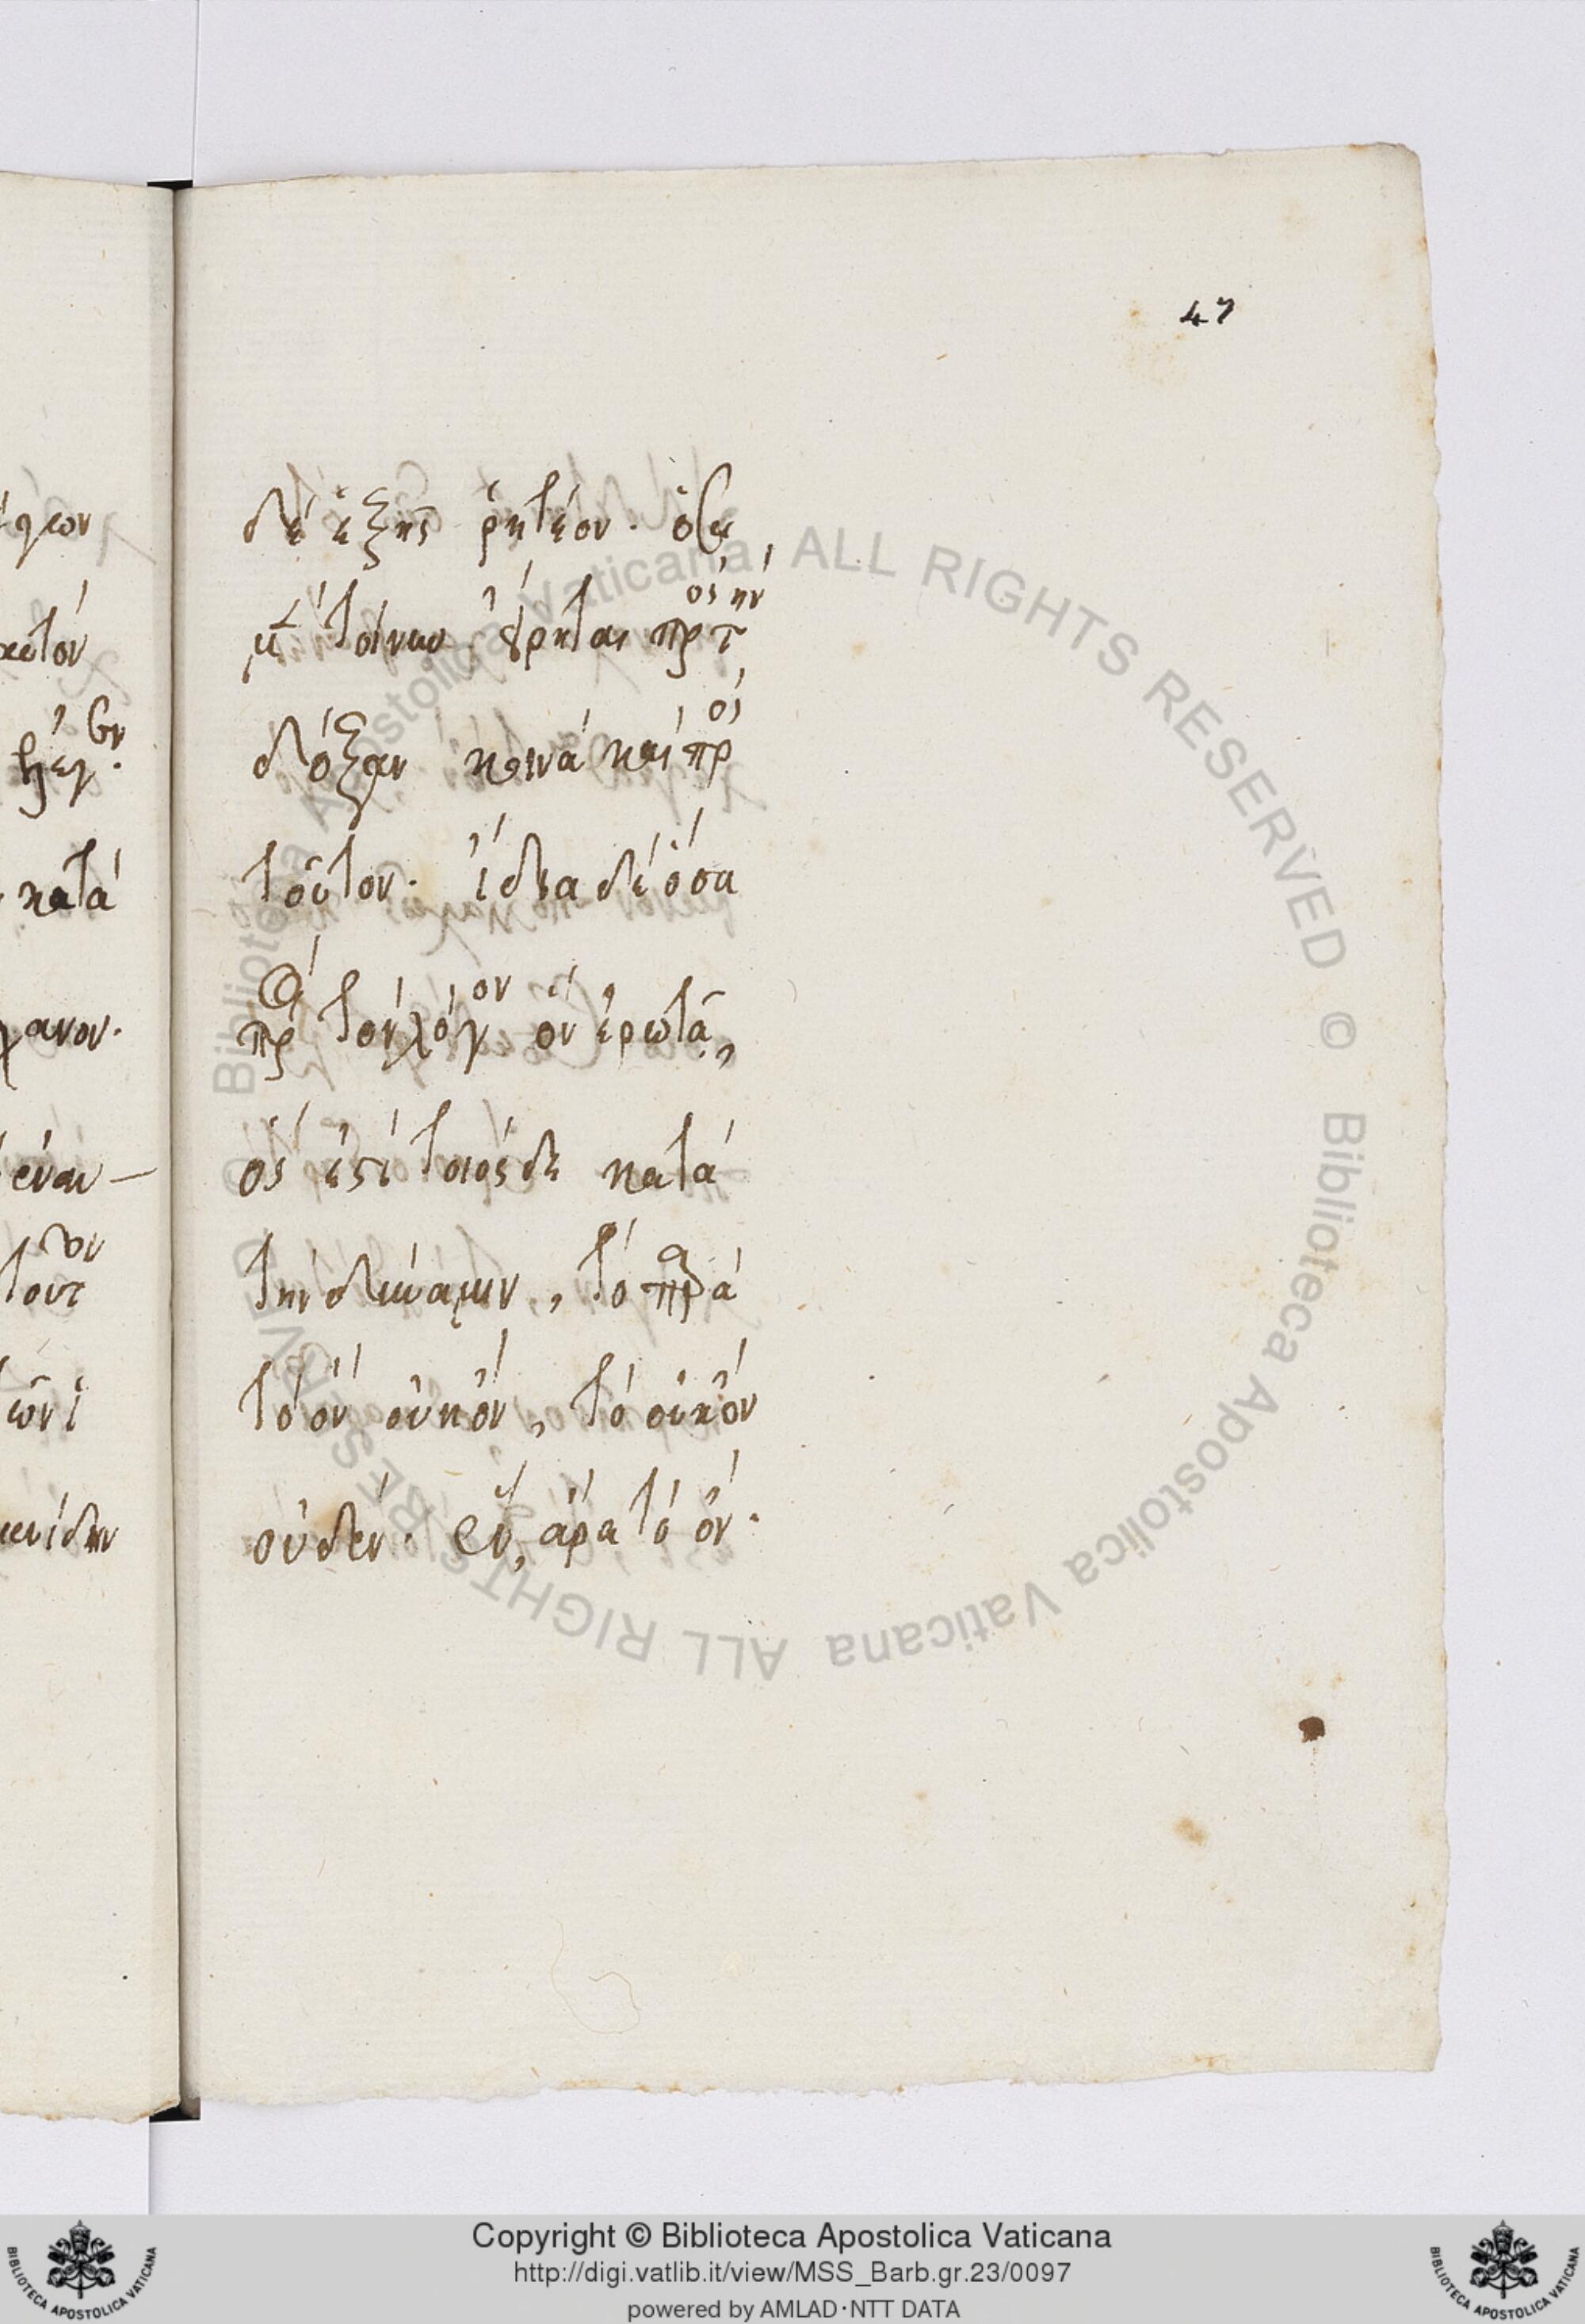 47
δὲ ἑξῆς ῥητέον. ὅσα
μὲν τοίνυν εἴρηται πρὸς τὴν
δόξαν κοινὰ καὶ πρὸς
τοῦτον. ἴδια δὲ ὅσα
πρὸς τὸν λόγον ὃν ἐρωτᾷ,
ὅς ἐστι τοιόσδε κατὰ
τὴν δύναμιν, τὸ παρὰ
τὸ ὂν οὐκ ὄν, τὸ οὐκ ὂν
οὐδέν. ἓν ἄρα τὸ ὄν.
κατὰ
Biblioteca Apostolica Vaticana ALL RIGHTS RESERVED © Biblioteca Apostolica Vaticana ALL RIGHTS RESERVED ©
Copyright © Biblioteca Apostolica Vaticana
http://digi.vatlib.it/view/MSS_Barb.gr.23/0097
powered by AMLAD·NTT DATA
BIBLIOTECA APOSTOLICA VATICANA
BIBLIOTECA APOSTOLICA VATICANA